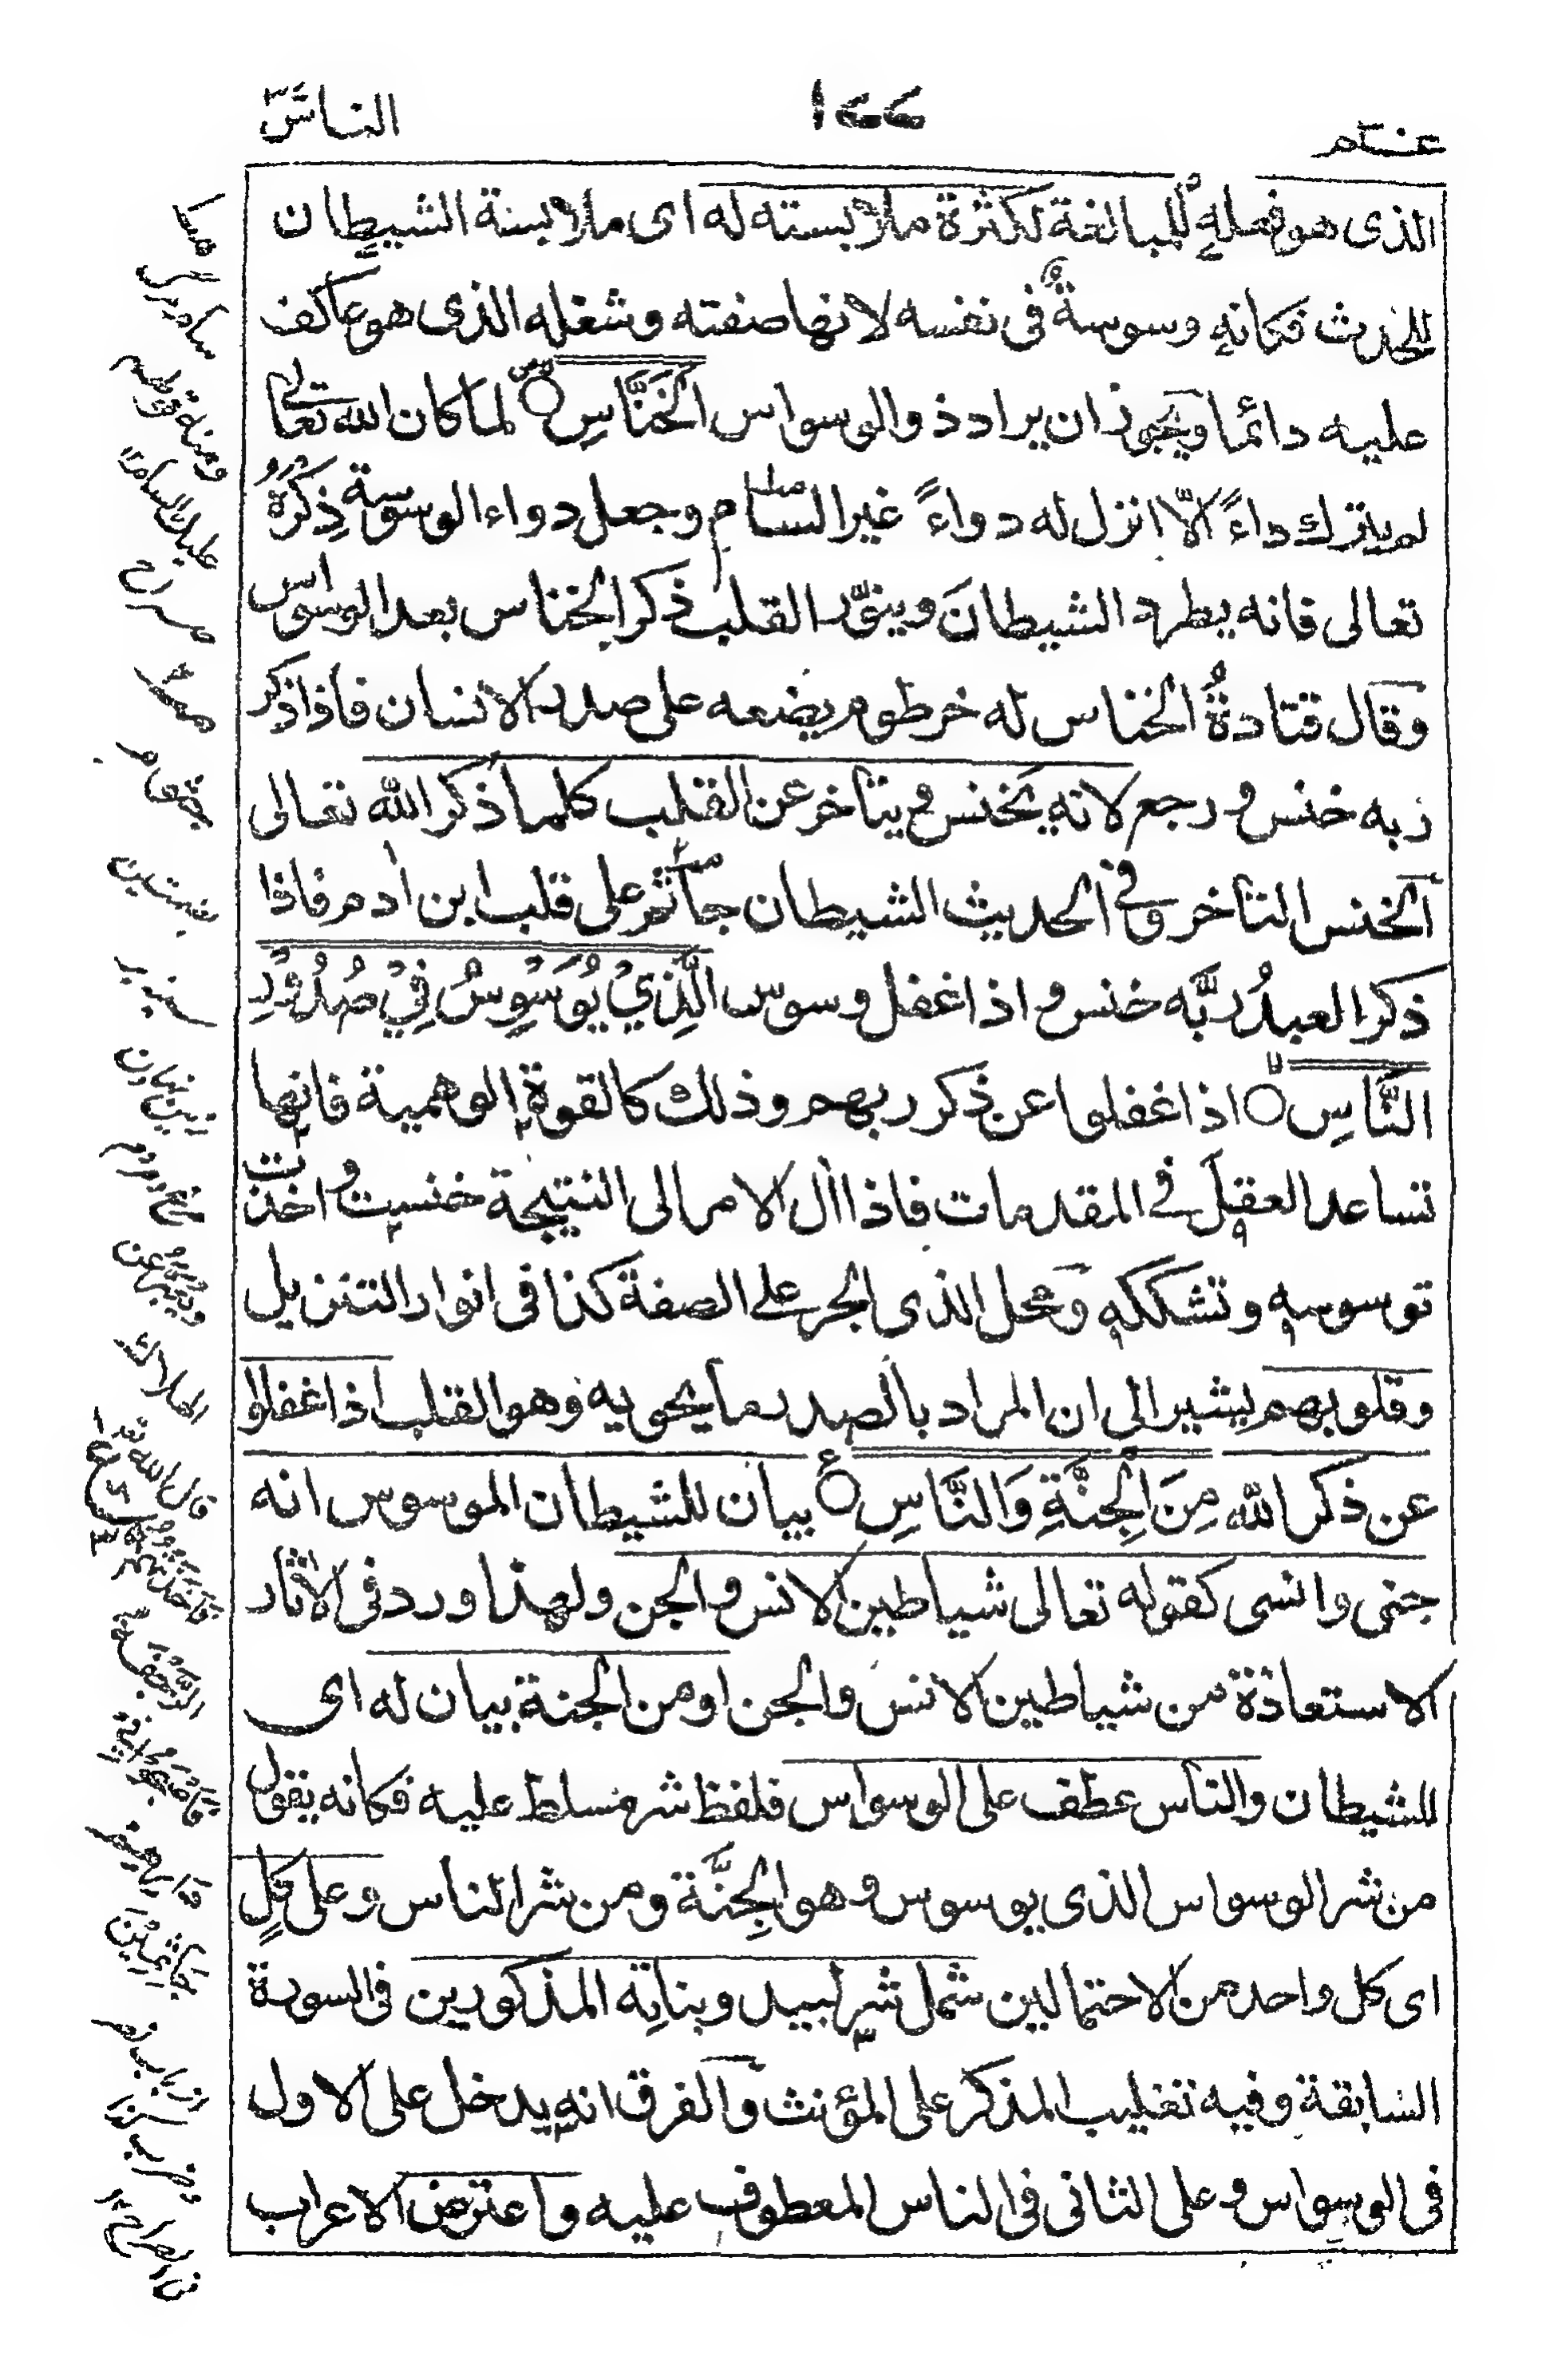 عم ١٧٧ الناس
الذى هو فعله للمبالغة لكثرة ملابسته له اى ملابسة الشيطان
للحدث فكانه وسوسة فى نفسه لانها صفته وشغله الذى هو عاكف
عليه دائما ويجوز ان يراد ذو الوسواس الْخَنَّاسِ لما كان الله تعالى
لم يترك داءً الّا انزل له دواءً غير السام وجعل دواء الوسوسة ذِكرَهُ
تعالى فانه يطرد الشيطانَ وينوّر القلب ذكر الخناس بعد الوسواس
وقال قتادةُ الخناس له خرطوم يضعه على صدر الانسان فاذا ذكر
ربه خنس ورجع لانه يخنس ويتأخر عن القلب كلما ذكر الله تعالى
الخنس التأخر وفى الحديث الشيطان جاثم على قلب ابن ادم فاذا
ذكر العبدُ ربَّه خنس واذا غفل وسوس الَّذِيْ يُوَسْوِسُ فِيْ صُدُوْرِ
النَّاسِ اذا غفلوا عن ذكر ربهم وذلك كالقوة الوهمية فانها
تساعد العقلَ فى المقدمات فاذا اٰل الامر الى النتيجة خنست واخذت
توسوسه وتشككه ومحل الذى الجر على الصفة كذا فى انوار التنزيل
وقلوبهم يشير الى ان المراد بالصدر ما يحويه وهو القلب اذا غفلوا
عن ذكر الله مِنَ الْجِنَّةِ وَالنَّاسِ بيان للشيطان الموسوس انه
جنى وانسى كقوله تعالى شياطين الانس والجن ولهذا ورد فى الاثار
الاستعاذة من شياطين الانس والجن او من الجنة بيان له اى
للشيطان والناس عطف على الوسواس فلفظ شر مسلط عليه فكانه يقول
من شر الوسواس الذى يوسوس وهو الجِنَّة ومن شر الناس وعلى كلٍ
اى كل واحد من الاحتمالين شمل شر لبيد وبناته المذكورين فى السورة
السابقة وفيه تغليب المذكر على المؤنث والفرق انه يدخل على الاول
فى الوسواس وعلى الثانى فى الناس المعطوف عليه واعترض الاعراب
ومنه قوله
عليه السلام
الهلاك
قال الله
فَاَخَذَتْهُمُ
الرَّجْفَةُ
فَاَصْبَحُوْا فِيْ
جَاثِمِيْنَ